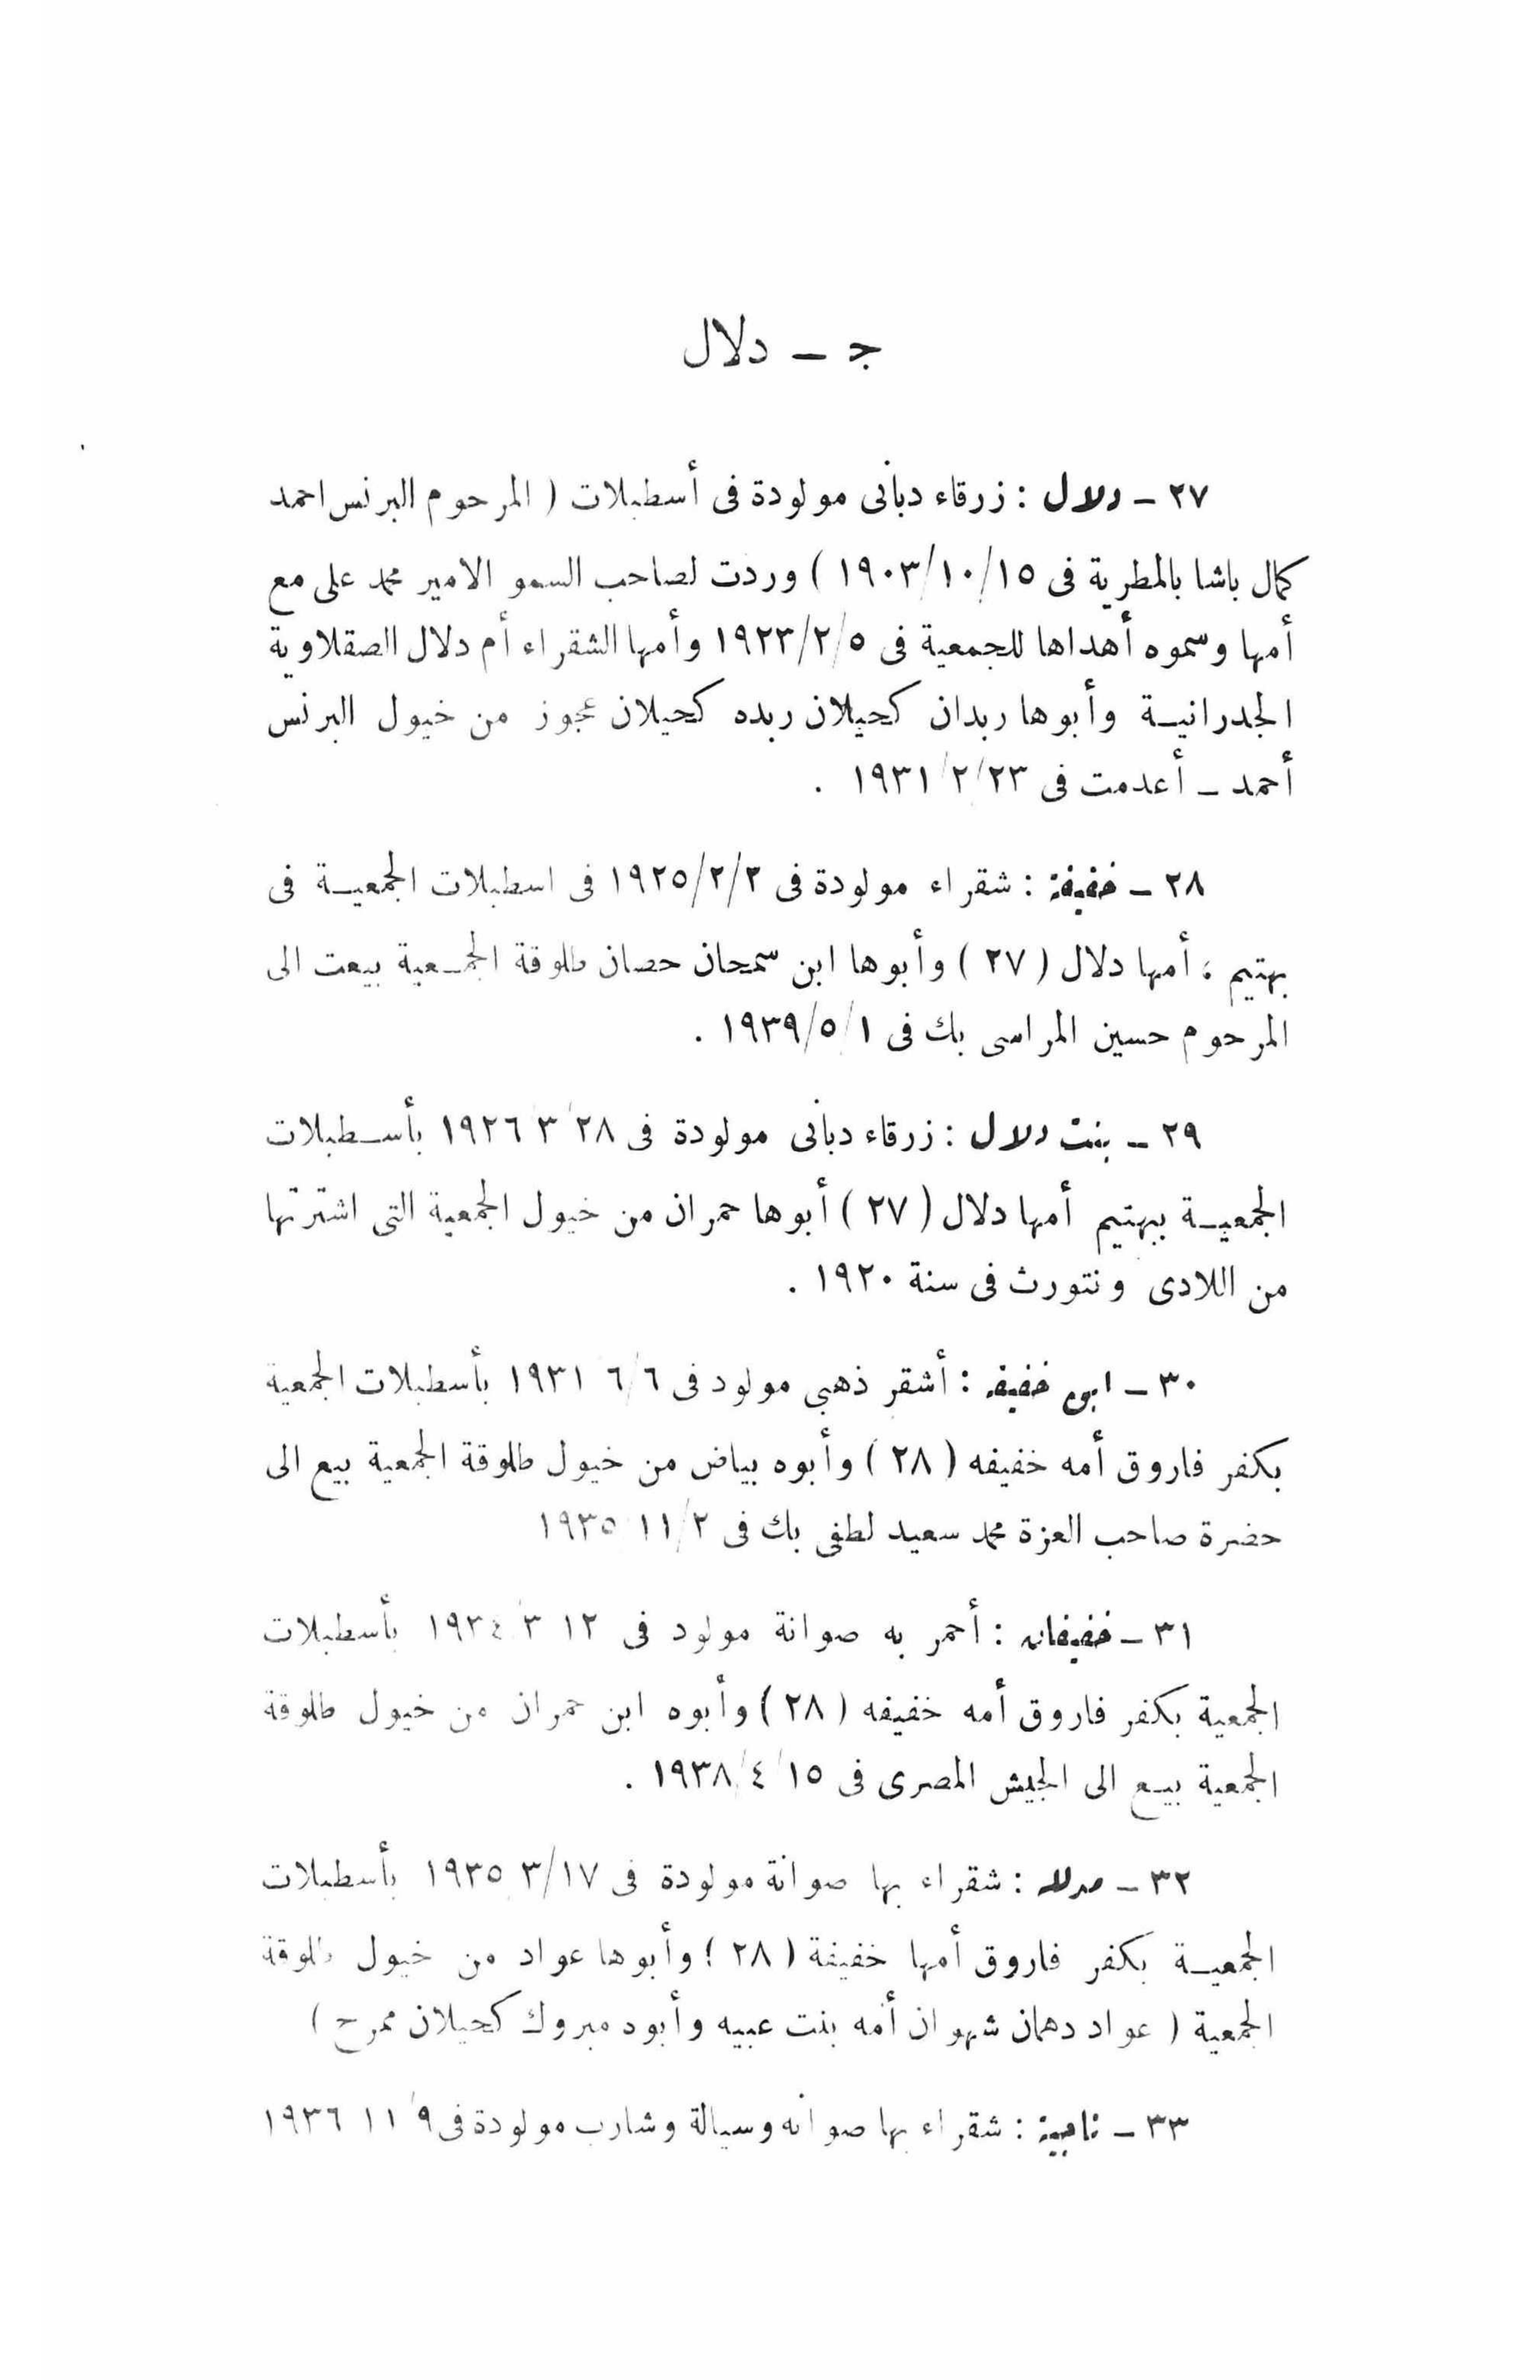 ج – دلال
٢٧ – دلال : زرقاء دبانى مولودة فى أسطبلات ( المرحوم البرنس احمد
كمال باشا بالمطرية فى ١٩٠٣/١٠/١٥ ) وردت لصاحب السمو الامير محمد على مع
أمها وسموه أهداها للجمعية فى ١٩٢٣/٢/٥ وأمها الشقراء أم دلال الصقلاوية
الجدرانية وأبوها ربدان كحيلان ربده كحيلان عجوز من خيول البرنس
أحمد – أعدمت فى ١٩٣١/٢/٢٣ .
٢٨ – خفيفة : شقراء مولودة فى ١٩٢٥/٢/٣ فى اسطبلات الجمعية فى
بهتيم ، أمها دلال ( ٢٧ ) وأبوها ابن سمحان حصان طلوقة الجمعية بيعت الى
المرحوم حسين المراسى بك فى ١٩٣٩/٥/١ .
٢٩ – بنت دلال : زرقاء دبانى مولودة فى ١٩٢٦/٣/٢٨ بأسطبلات
الجمعية ببهتيم أمها دلال ( ٢٧ ) أبوها حمران من خيول الجمعية التى اشترتها
من اللادى ونتورث فى سنة ١٩٢٠ .
٣٠ – ابن خفيفه : أشقر ذهبى مولود فى ١٩٣١/٦/٦ بأسطبلات الجمعية
بكفر فاروق أمه خفيفه ( ٢٨ ) وأبوه بياض من خيول طلوقة الجمعية بيع الى
حضرة صاحب العزة محمد سعيد لطفى بك فى ١٩٣٥/١١/٢
٣١ – خفيفان : أحمر به صوانة مولود فى ١٩٣٤/٣/١٢ بأسطبلات
الجمعية بكفر فاروق أمه خفيفه ( ٢٨ ) وأبوه ابن حمران من خيول طلوقة
الجمعية بيع الى الجيش المصرى فى ١٩٣٨/٤/١٥ .
٣٢ – مدلله : شقراء بها صوانة مولودة فى ١٩٣٥/٣/١٧ بأسطبلات
الجمعية بكفر فاروق أمها خفيفة ( ٢٨ ) وأبوها عواد من خيول طلوقة
الجمعية ( عواد دهمان شهوان أمه بنت عبيه وأبوه مبروك كحيلان ممرح )
٣٣ – ناهية : شقراء بها صوانه وسيالة وشارب مولودة فى ١٩٣٦/١١/٩